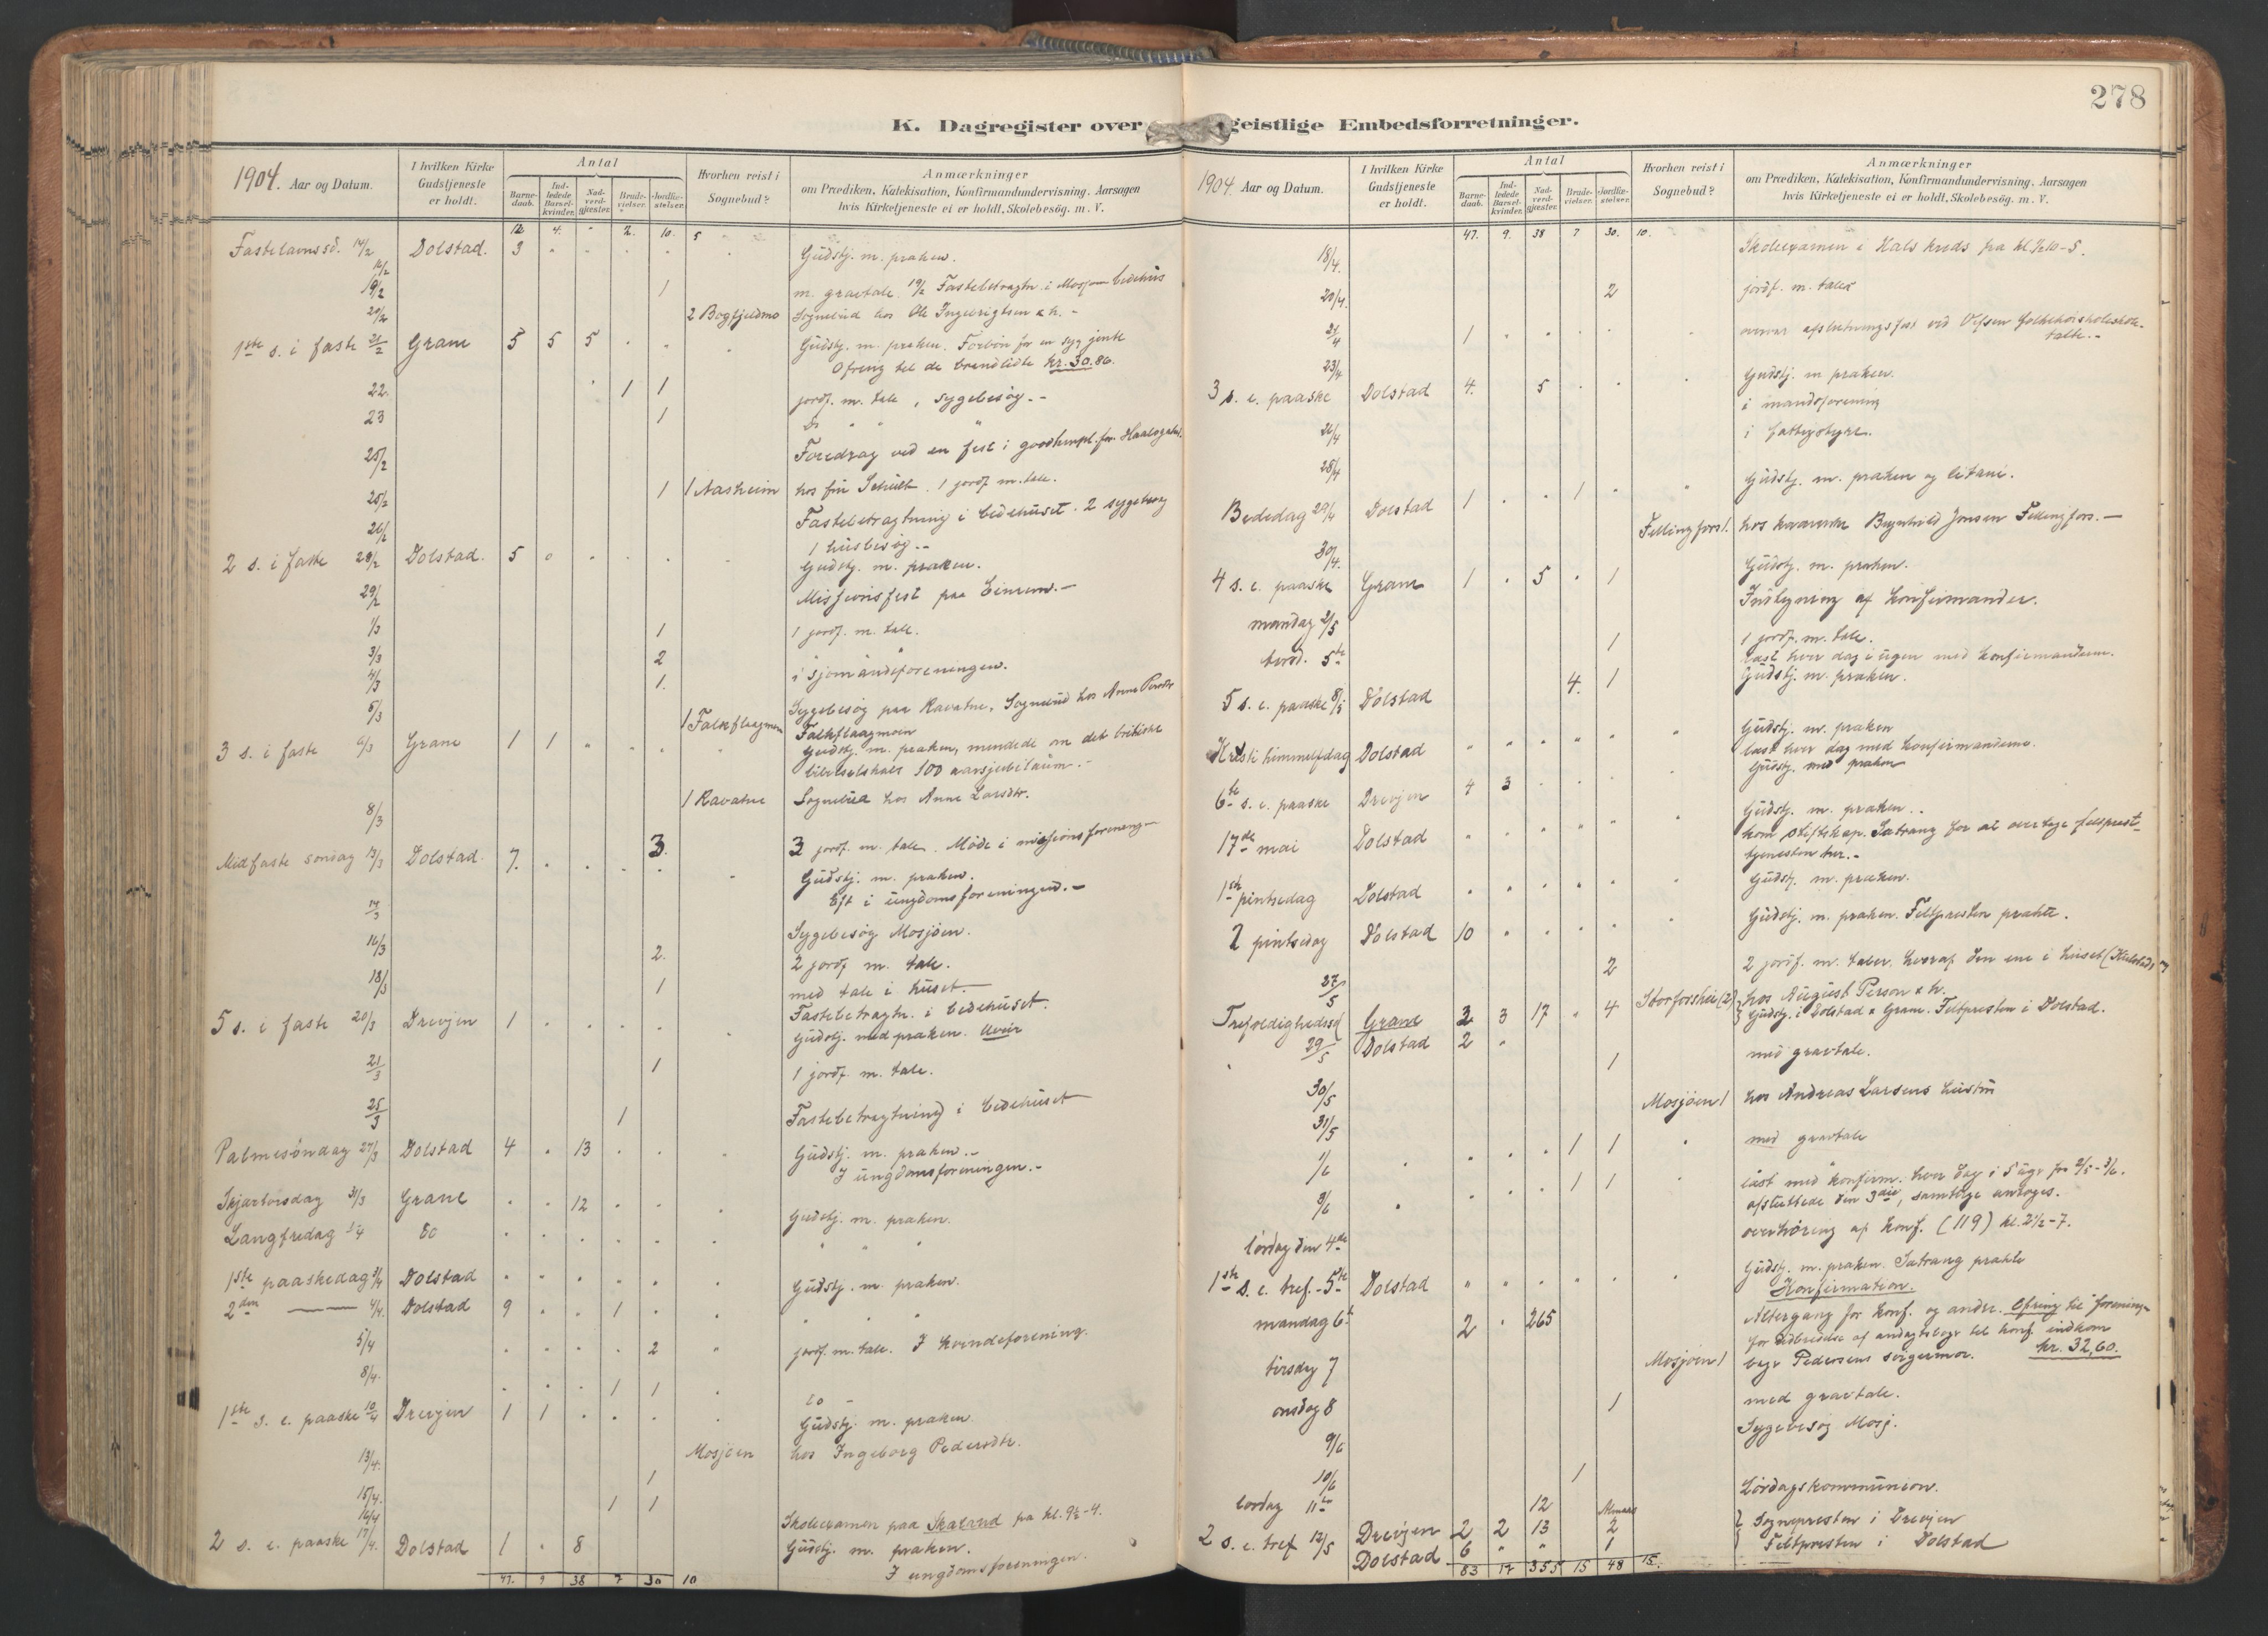 278
K. Dagregister over geistlige Embedsforretninger.
1904. Aar og Datum.
I hvilken Kirke Gudstjeneste er holdt.
Antal
Barne-daab.
Ind-ledede Barsel-kvinder.
Nad-verd-gjæster.
Brude-vielser.
Jordfæ-stelser.
Hvorhen reist i Sognebud?
Anmærkninger
om Prædiken, Katekisation, Konfirmandundervisning, Aarsagen
hvis Kirketjeneste ei er holdt, Skolebesög. m. V.
12 4. " 2. 10. 5
Fastelavnssd. 14/2 Dolstad. 3 Gudstj. m. præken.
16/2
19/2 1 m. gravtale. 19/2 Fastebetragtn. i Mosjøen bedehus
20/2 2 Bogfjeldmo Sognebud hos Ole Ingebrigtsen & h. -
1ste s. i faste 21/2 Grane 5 5 5 Gudstj. m. præken. Forbøn for en syg jente
Ofring til de brandlidte kr. 30.86.
22. 1 1 jordf. m. tale, sygebesøg. -
23 1 Do " "
25/2 Foredrag ved en fest i goodtempl. for
25/2 1 1 Aasheim hos fru Schult. 1 jordf m. tale.
26/2 Fastebetragtning i bedehuset. 2 sygebesøg
1 husbesøg. -
2 s. i faste 28/2 Dolstad. 5 Gudstj. m. præken.
29/2 Missionsfest paa Einrem. -
1/3 1 1 jordf. m. tale.
3/3 2 " "
4/3 1. i sjømandsforeningen.
5/3 1 Falkflaagmoen Sygebesøg paa Ravatne, Sognebud hos Anne
Falkflaagmoen
3 s. i faste 6/3 Grane 1 1 Gudstj. m. præken, mindede om det britiske
bibelselskabs 100 aarsjubilæum. -
8/3 1 Ravatne Sognebud hos Anne Larsdtr.
3. 3 jordf. m. tale. Møde i missionsforeningen
Midfaste søndag 13/3 Dolstad. 7. Gudstj. m. præken.
Eft i ungdomsforeningen. -
14/3 Sygebesøg Mosjøen.
16/3 2. 2 jordf m. tale.
18/3 1 med tale i huset. -
Fastebetragtn. i bedehuset.
5 s. i faste 20/3 Drevjen 1 Gudstj. med præken. Uveir
21/3 1 1 jordf. m. tale.
25/3 1 Fastebetragtning i bedehuset
Palmesøndag 27/3 Dolstad 4 13 Gudstj. m. præken. -
I ungdomsforeningen. -
Skjærtorsdag 31/3 Grane 12 Gudstj. m. præken.
Langfredag 1/4 do " " "
1ste paaskedag 3/4 Dolstad Gudstj. m. præken.
2den —— 4/4. Dolstad 9 1 " " "
5/4 2 jordf. m. tale. I kvindeforening.
8/4. 1 1 do -
1ste s. e. paaske 10/4 Drevjen 1 1 Gudstj. m. præken.
13/4. Mosjøen hos Ingeborg Pedersdtr.
1
15/4. 1 1
16/4 Skoleexamen paa Skaland fra kl. 9½-4.
2 s. e. paaske 17/4. Dolstad 1 8 Gudstj. m. præken.
I ungdomsforeningen.
47. 9 38 7 30 10
1904 Aar og Datum.
I hvilken Kirke Gudstjeneste er holdt.
Antal
Barne-daab.
Ind-ledede Barsel-kvinder.
Nad-verd-gjæster.
Brude-vielser.
Jordfæ-stelser.
Hvorhen reist i Sognebud?
Anmærkninger
om Prædiken, Katekisation, Konfirmandundervisning, Aarsagen
hvis Kirketjeneste ei er holdt, Skolebesög. m. V.
47. 9. 38 7 30. 10.
18/4. Skoleexamen i Hals kreds fra kl. ½10-5.
20/4. 2 jordf. m. taler
21/4 1 overvar afslutningsfest ved Vefsen
talte. -
23/4
3 s. e. paaske Dolstad 4. 5 Gudstj. m præken.
i mandsforening
26/4 i fattigstyre.
28/4
Bededag 29/4 Dolstad 1 1 Gudstj. m. præken og litani.
30/4. Fellingfors 1. hos Brynhild Jonsen Fellingfors. —
4 s. e. paaske Grane 1 5 1 Gudstj. m. præken.
mandag 2/5 Indlysning af konfirmander.
torsd. 5te 1 1 jordf. m. tale.
læst hver dag i ugen med konfirmanderne.
5 s. e. paaske 8/5 Dolstad 4. 1 Gudstj. m. præken.
Kristi himmelfdag Dolstad Gudstj. m. præken
læst hver dag med konfirmanderne.
6te s. e. paaske Drevjen 4 3 Gudstj. med præken
17de mai Dolstad Gudstj. m. præken. .
kom stiftskap. Sætrang for at overtage feltprest-
tjenesten her. -
1ste pintsedag Dolstad Gudstj. m. præken.
2 pintsedag Dolstad 10 Gudstj. m. præken. Feltpresten prækte.
27/5 2 2 jordf. m. taler, hvoraf den ene i huset
Storforshei (2) hos August Person & h.
Trefoldighedssd Grane 3 3 17 4 Gudstj. i Dolstad & Grane. Feltpresten i Dolstad.
29/5 Dolstad 2
1 med gravtale.
30/5 Mosjøen 1 hos Andreas Larsens hustru
31/5
1/6 1 1 med gravtale
3/6 1 1 læst med konfirm. hver dag i 5 uger fra 2/5-3/6.
afsluttede den 3die, samtlige antoges.
lørdag den 4de overhøring af konf. (119) kl. 2½-7.
1ste s. e. tref. - 5te Dolstad Gudstj. m. præken. Sætrang prækte
Konfirmation.
mandag 6te 2 265 Altergang for konf. og andre. Ofring til forening
for udbredelse af andagtsbøger til konf. indkom
kr. 32,60.
tirsdag 7 Mosjøen 1 Pedersens svigermor.
onsdag 8 1 med gravtale.
9/6 Sygebesøg Mosj.
10/6 1
lørdag 11te 12 Lørdagskommunion.
2 s. e. tref 12/5 Drevjen 2 2 13 2 Sognepresten i Drevjen
Dolstad 6 " " 1 Feltpresten i Dolstad
83 17 355 15 48 15.